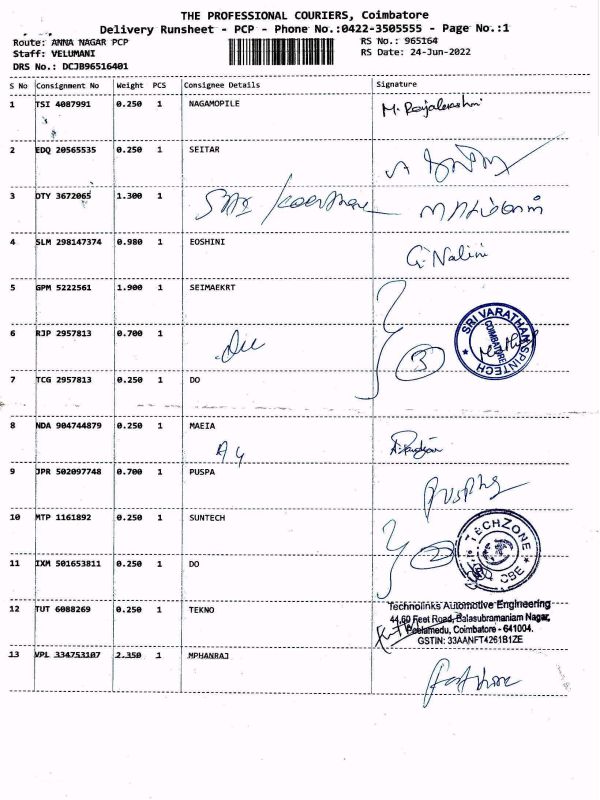 THE PROFESSIONAL COURIERS, Coimbatore
Delivery Runsheet - PCP - Phone No.:0422-3505555 - Page No.:1
Route: ANNA NAGAR PCP
Staff: VELUMANI
DRS No.: DCJB96516401
RS No.: 965164
RS Date: 24-Jun-2022
S No Consignment No Weight PCS Consignee Details Signature
1 TSI 4087991 0.250 1 NAGAMOPILE
2 EDQ 20565535 0.250 1 SEITAR
3 DTY 3672065 1.300 1
4 SLM 298147374 0.980 1 EOSHINI G. Nalini
5 GPM 5222561 1.900 1 SEIMAEKRT
6 RJP 2957813 0.700 1 3
SRI VARATHAN SPINTECH
COIMBATORE
7 TCG 2957813 0.250 1 DO
8 NDA 904744879 0.250 1 MAEIA
9 JPR 502097748 0.700 1 PUSPA
10 MTP 1161892 0.250 1 SUNTECH
TECHZONE
CBE
2
11 IXM 501653811 0.250 1 DO
12 TUT 6088269 0.250 1 TEKNO
Technolinks Automotive Engineering
44,60 Feet Road, Balasubramaniam Nagar,
Peelamedu, Coimbatore - 641004.
GSTIN: 33AANFT4261B1ZE
13 VPL 334753107 2.350 1 MPHANRAJ